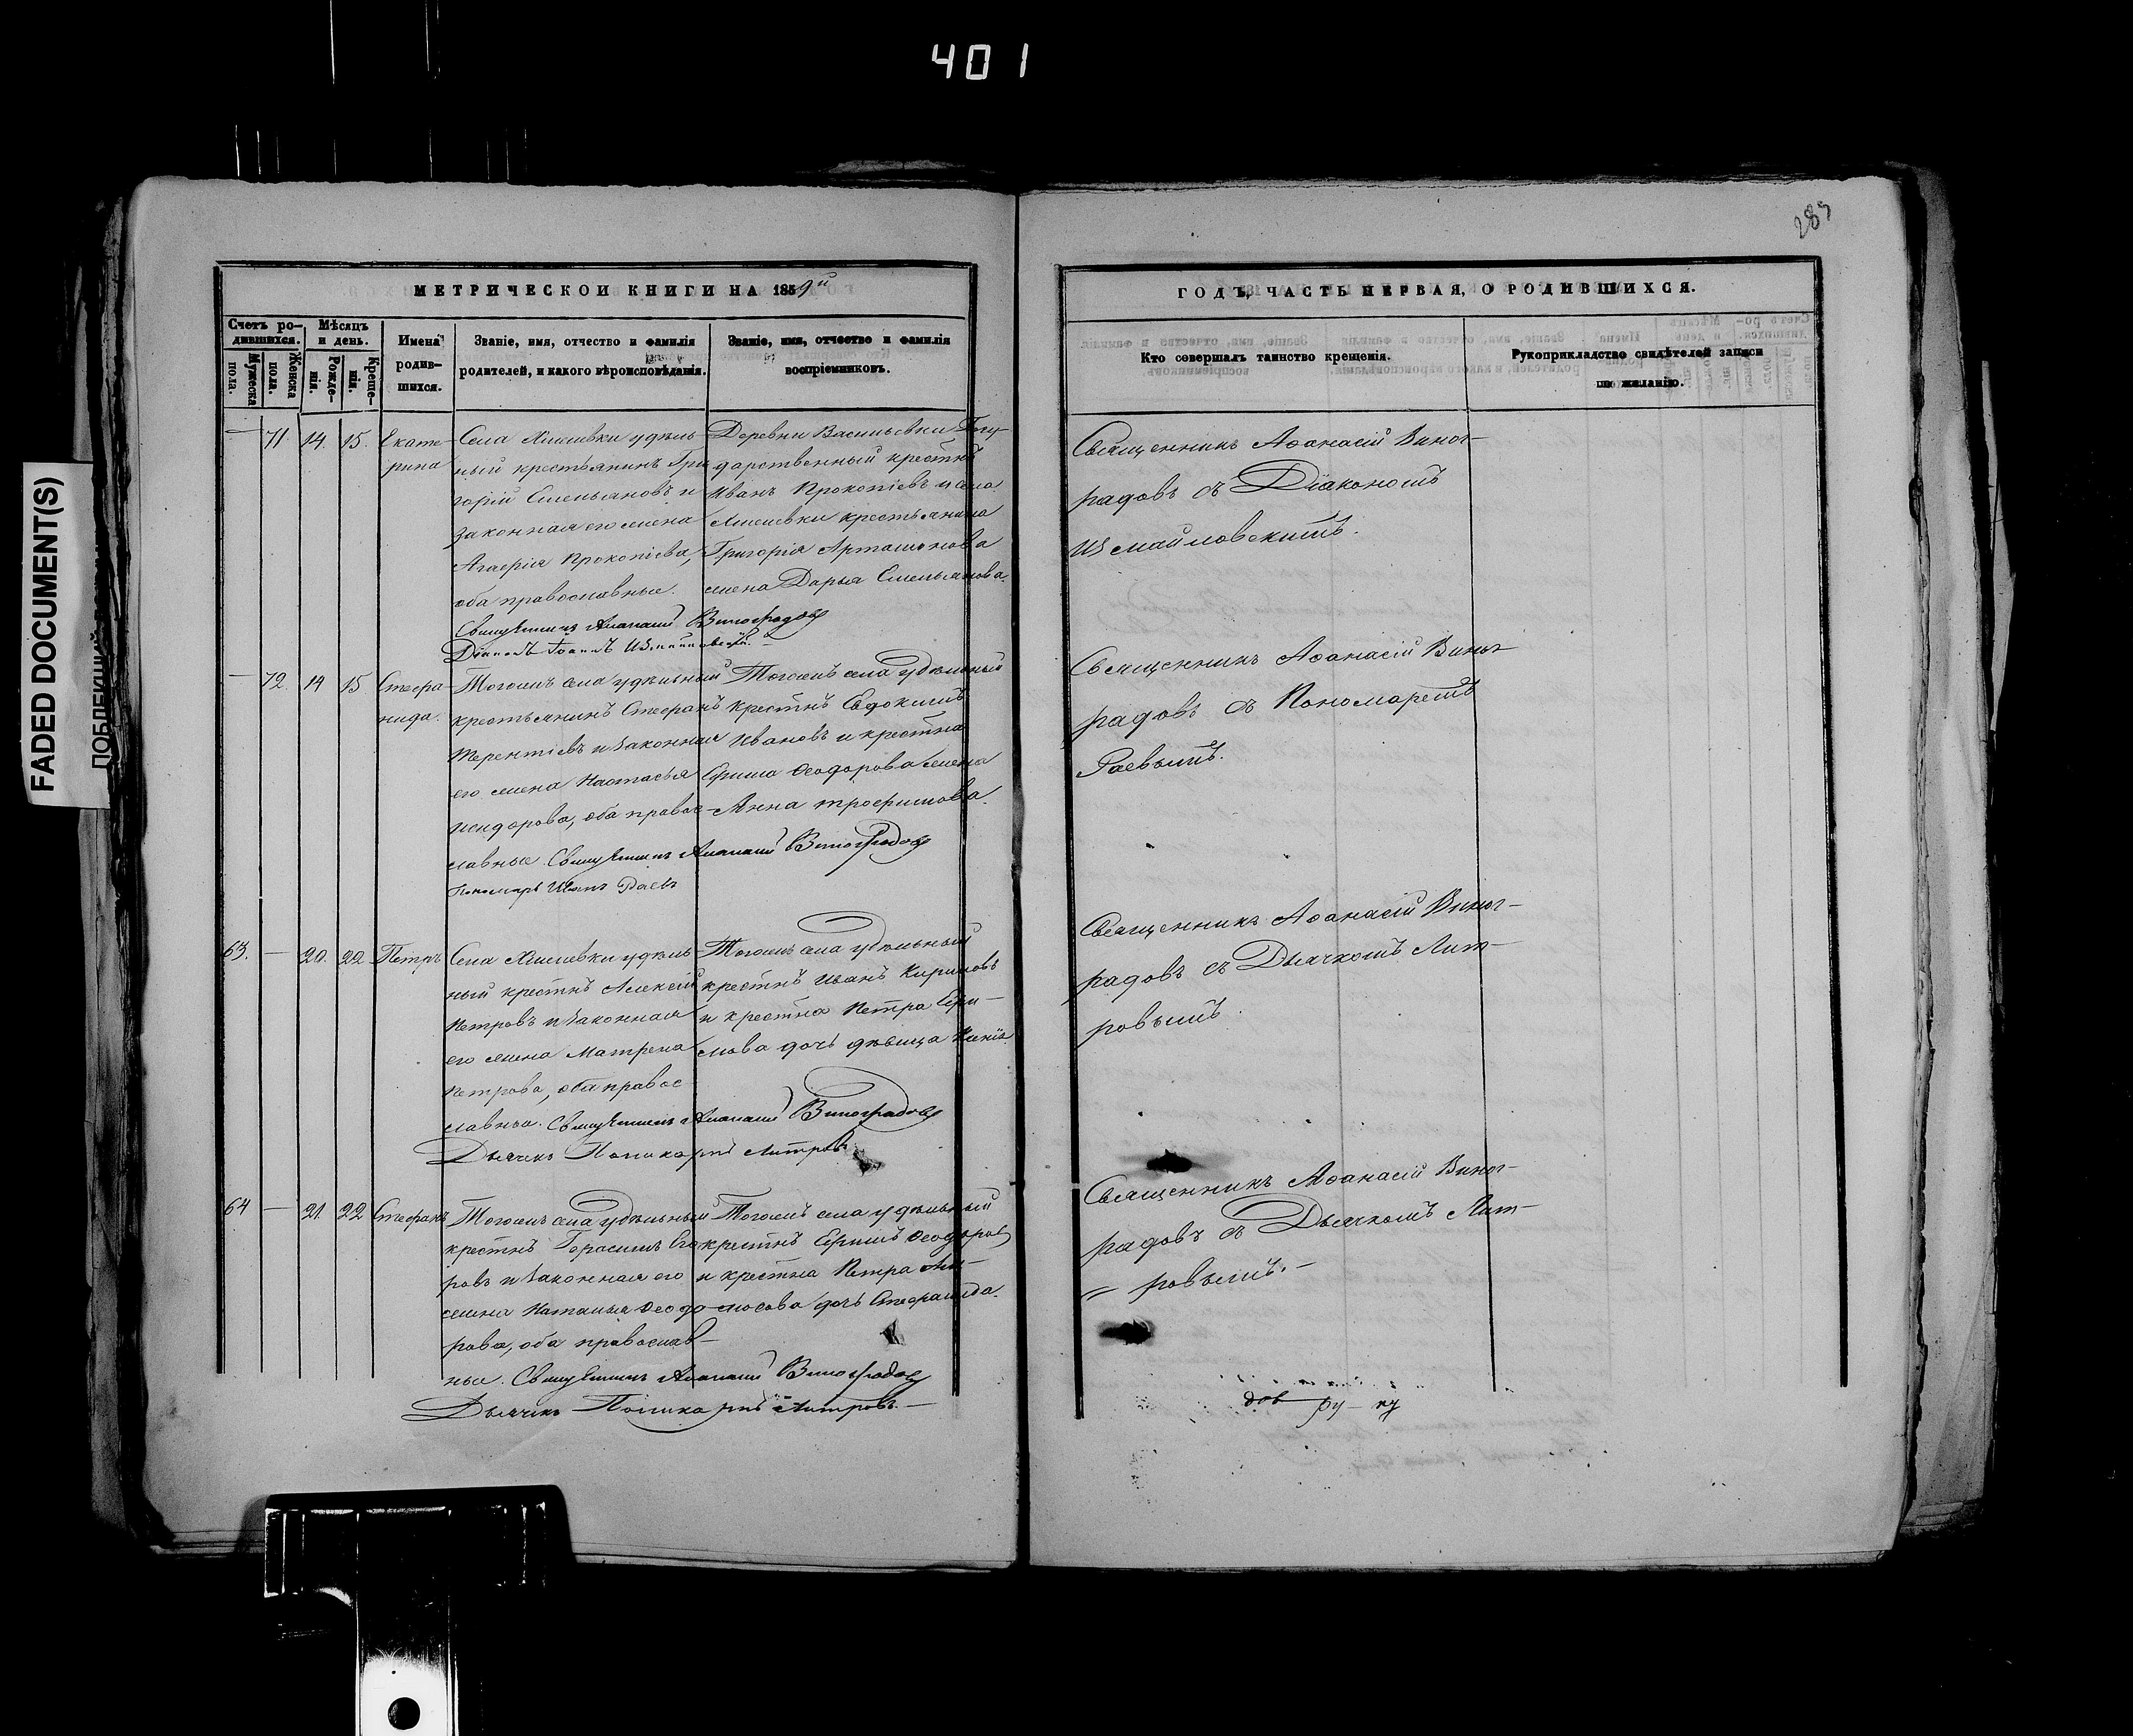 401
FADED DOCUMENT(S)
289
МЕТРИЧЕСКОИ КНИГИ НА 1859й
Счетъ ро-
дившихся.
Мужеска
пола.
Женска
пола.
Мѣсяцъ
и день.
Рожде-
нія.
Креще-
нія.
Имена
родив-
шихся.
Званіе, имя, отчество и фамилія
родителей, и какого вѣроисповѣданія.
Званіе, имя, отчество и фамилія
воспріемниковъ.
— 71 14. 15. Екате-
рина
Села Хмелевки удѣль-
ный крестьянинъ Гри
горій Емельяновъ и
законная его жена
Агафія Прокопіева,
оба православные.
Деревни Васильевки Госу-
дарственный крестнъ
Иванъ Прокопіевъ и села
Хмелевки крестьянина
Григорія Арташонова
жена Дарья Емельянова.
Священникъ Аѳанасій Виноградовъ
Діаконъ Іоаннъ Измайловскій.
— 72. 14 15 Стефа-
нида.
Тогожъ села удѣльный
крестьянинъ Стефанъ
Терентіевъ и законная
его жена Настасья
Исидорова, оба правос-
лавные. Священникъ Аѳанасій Виноградовъ
Пономарь Иванъ Раевъ
Тогожъ села удѣльный
крестнъ Евдокимъ
Ивановъ и крестна
Ефима Ѳеодорова жена
Анна Трофимова.
63. — 20. 22 Петръ
Села Хмелевки удѣль-
ный крестнъ Алексій
Петровъ и законная
его жена Матрена
Петрова, оба правос-
лавные. Священникъ Аѳанасій Виноградовъ
Дьячекъ Поликарпъ Литровъ
Тогожъ села удѣльный
крестнъ Иванъ Кириловъ
и крестна Петра Ефи-
мова дочь дѣвица
64 — 21. 22 Стефанъ
Тогожъ села удѣльный
крестнъ Герасимъ Его
ровъ и законная его
жена Наталья Ѳеодо-
рова, оба православ-
ные. Священникъ Аѳанасій Виноградовъ
Дьячекъ Поликарпъ Литровъ.—
Тогожъ села удѣльный
крестнъ Ефимъ Ѳеодоров
и крестна Петра
дочь Стефанида.
ГОДЪ, ЧАСТЬ ПЕРВАЯ, О РОДИВШИХСЯ.
Кто совершалъ таинство крещенія.
Рукоприкладство свидѣтелей записи
по желанію.
Священникъ Аѳанасій Виног-
радовъ съ Діакономъ
Измайловскимъ.
Священникъ Аѳанасій Виног-
радовъ съ Пономаремъ
Раевымъ.
Священникъ Аѳанасій Виног-
радовъ съ Дьячкомъ Лит-
ровымъ.
Священникъ Аѳанасій Виног-
радовъ съ Дьячкомъ Лит-
ровымъ.—